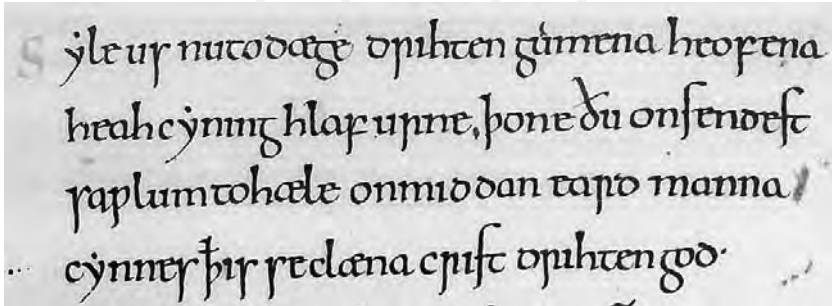 Sẏle us nu to dæge drihten gúmena heofena
heah cẏning hlaf urne, þone ðu onsendest
saƿlum to hæle on middan eard manna
cẏnnes ꝥ is se clæna crist drihten god·